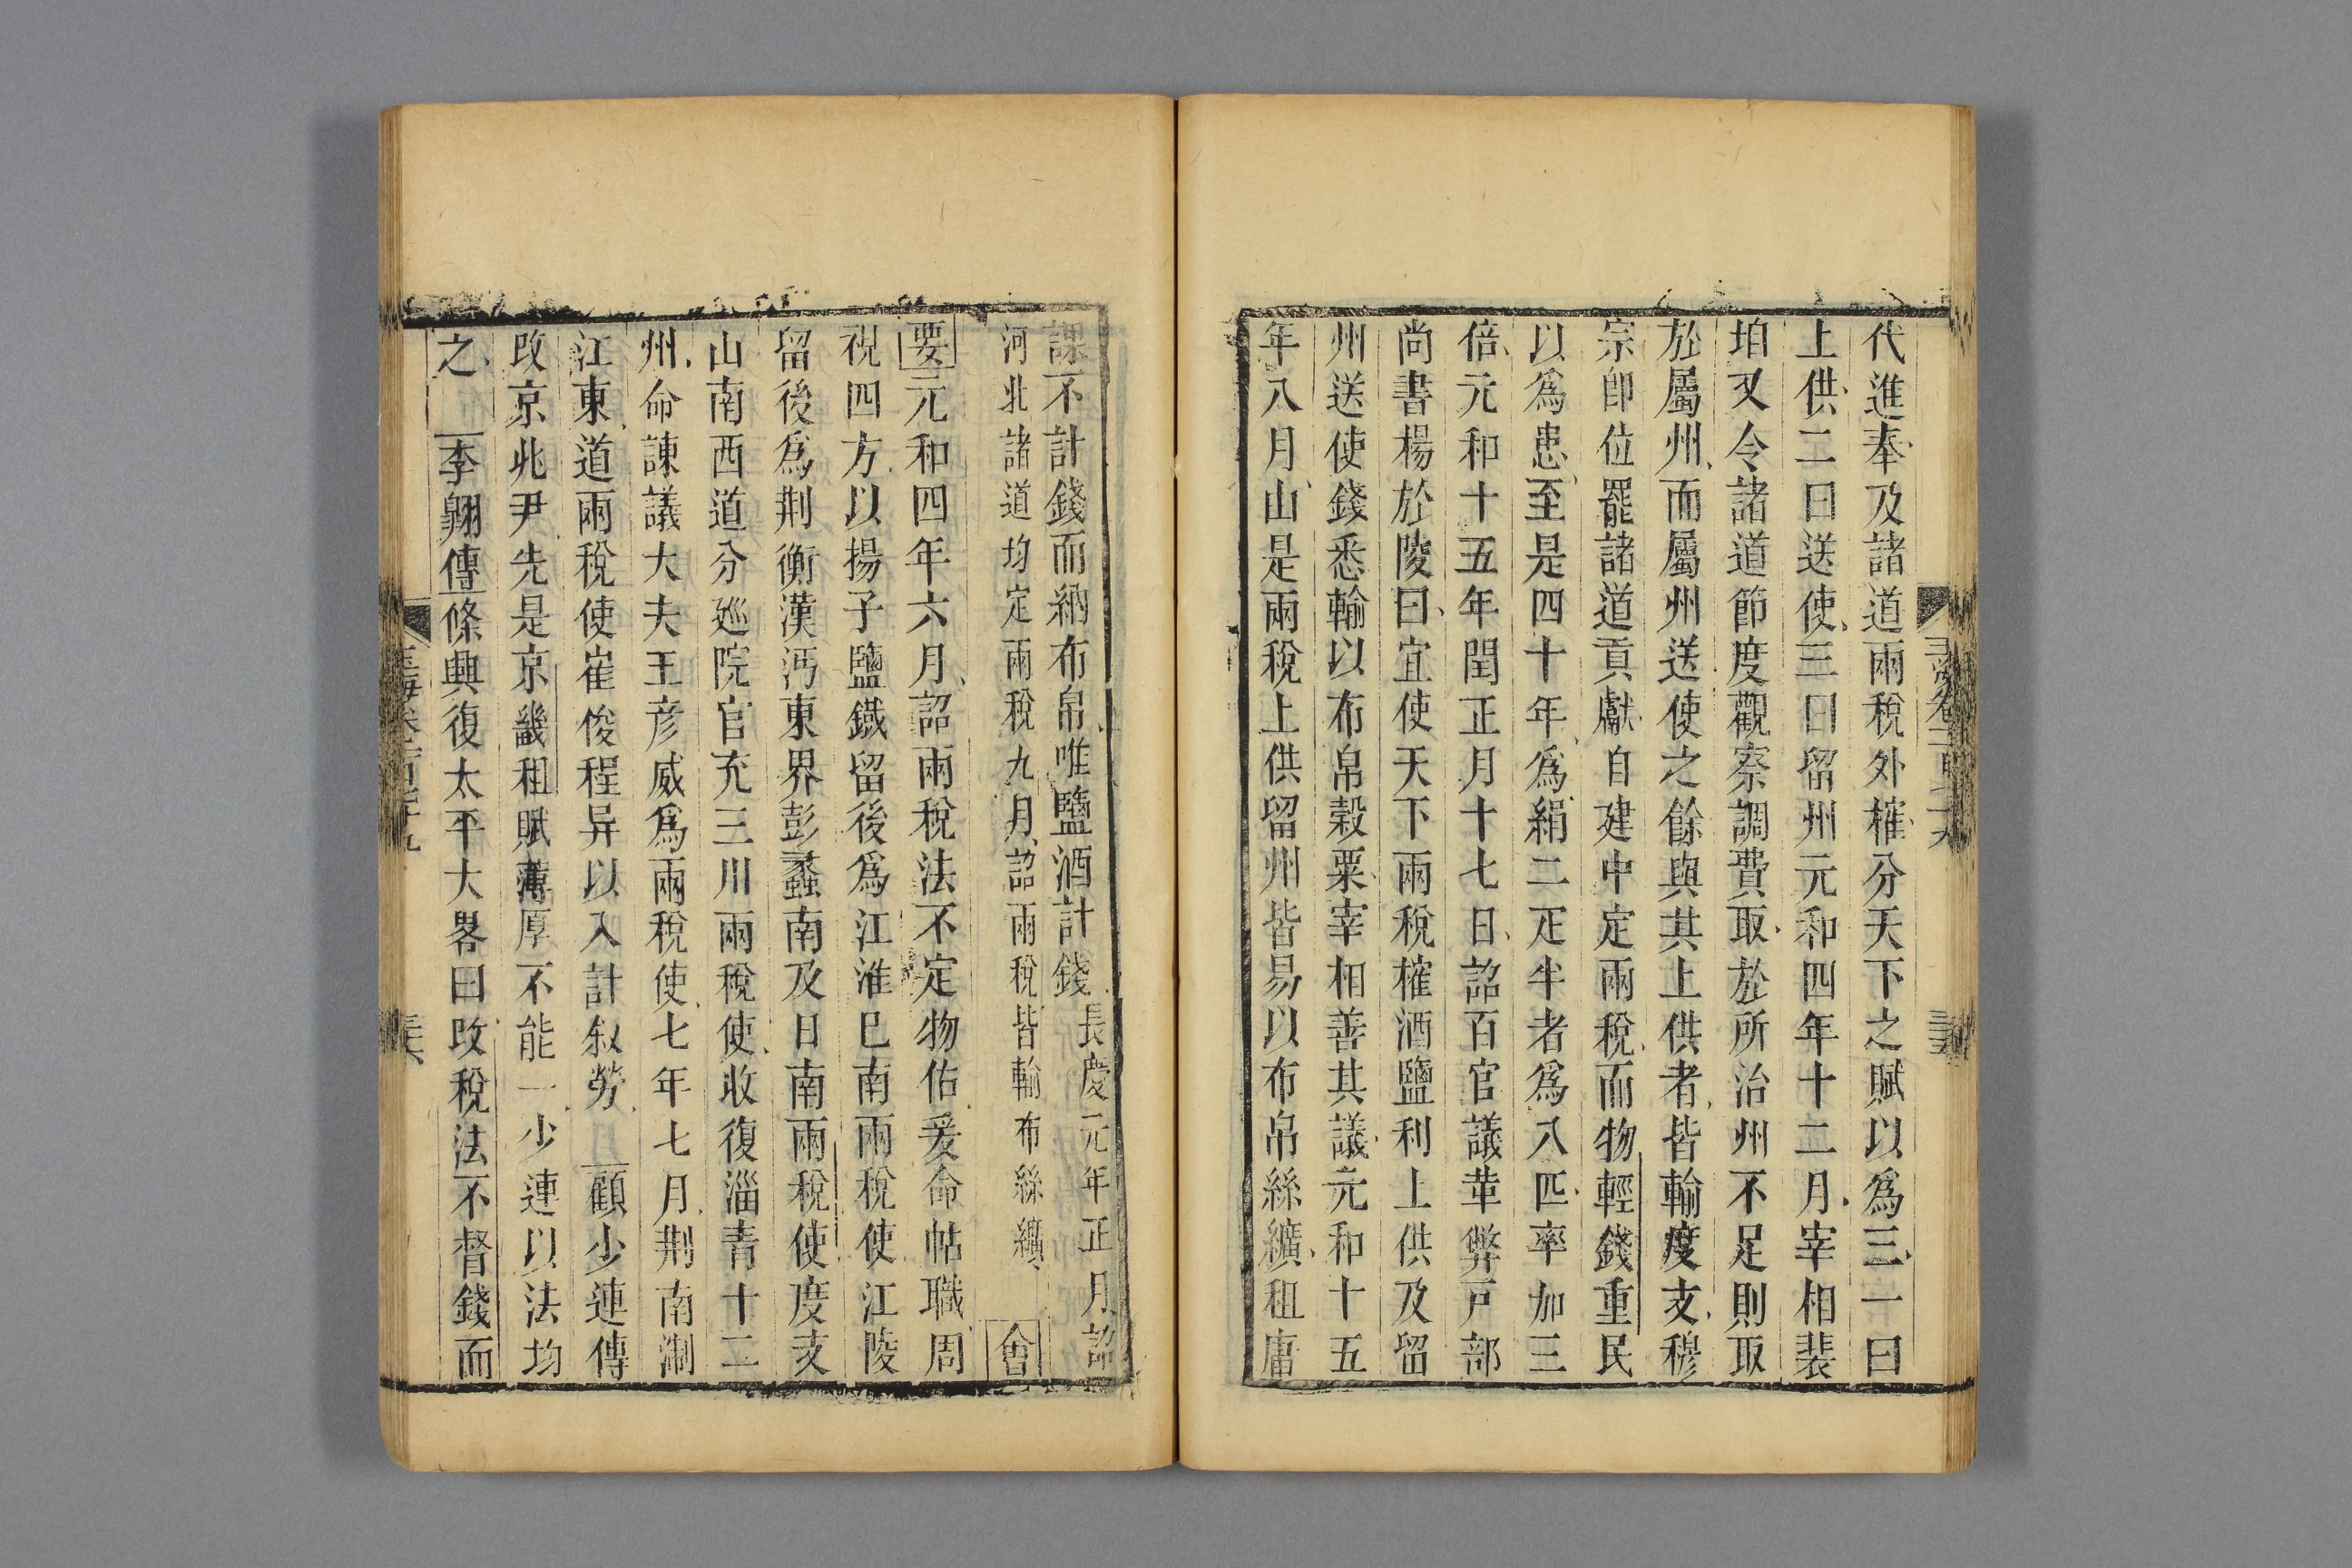 代進奉及諸道兩稅外榷分天下之賦以為三一曰
上供二曰送使三曰留州元和四年十二月宰相裴
垍又令諸道節度觀察調費取於所治州不足則取
於屬州而屬州送使之餘與其上供者皆輸度支穆
宗卽位罷諸道貢獻自建中定兩稅而物輕錢重民
以為患至是四十年為絹二疋半者為八匹率加三
倍元和十五年閏正月十七日詔百官議革弊戸部
尚書楊於陵曰宜使天下兩稅榷酒鹽利上供及留
州送使錢悉輸以布帛穀粟宰相善其議元和十五
年八月山是兩稅上供留州皆易以布帛絲纊租庸
課不計錢而納布帛唯鹽酒計錢長慶元年正月詔
河北諸道均定兩稅九月詔兩稅皆輸布絲纊會
要元和四年六月詔兩稅法不定物估爰命帖職周
視四方以揚子鹽鐵留後為江淮巳南兩稅使江陵
留後為荆衡漢沔東界彭蠡南及日南兩稅使度支
山南西道分廵院官充三川兩稅使收復淄青十二
州命諫議大夫王彦威為兩稅使七年七月荆南淛
江東道兩稅使崔倰程异以入計叙勞顧少連傳
改京兆尹先是京畿租賦薄厚不能一少連以法均
之李翺傳條興復太平大畧曰改稅法不督錢而